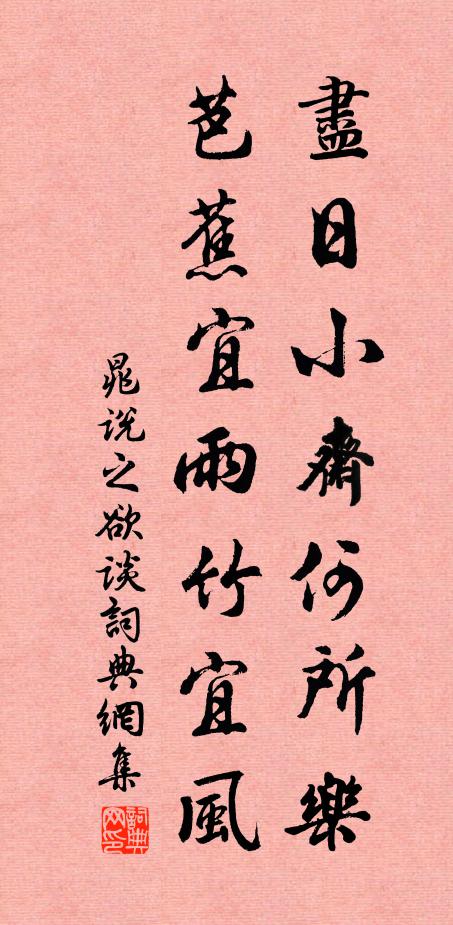 盡日小齋何所樂
芭蕉宜雨竹宜風
晁說之欲談詞典網集
詞典网印